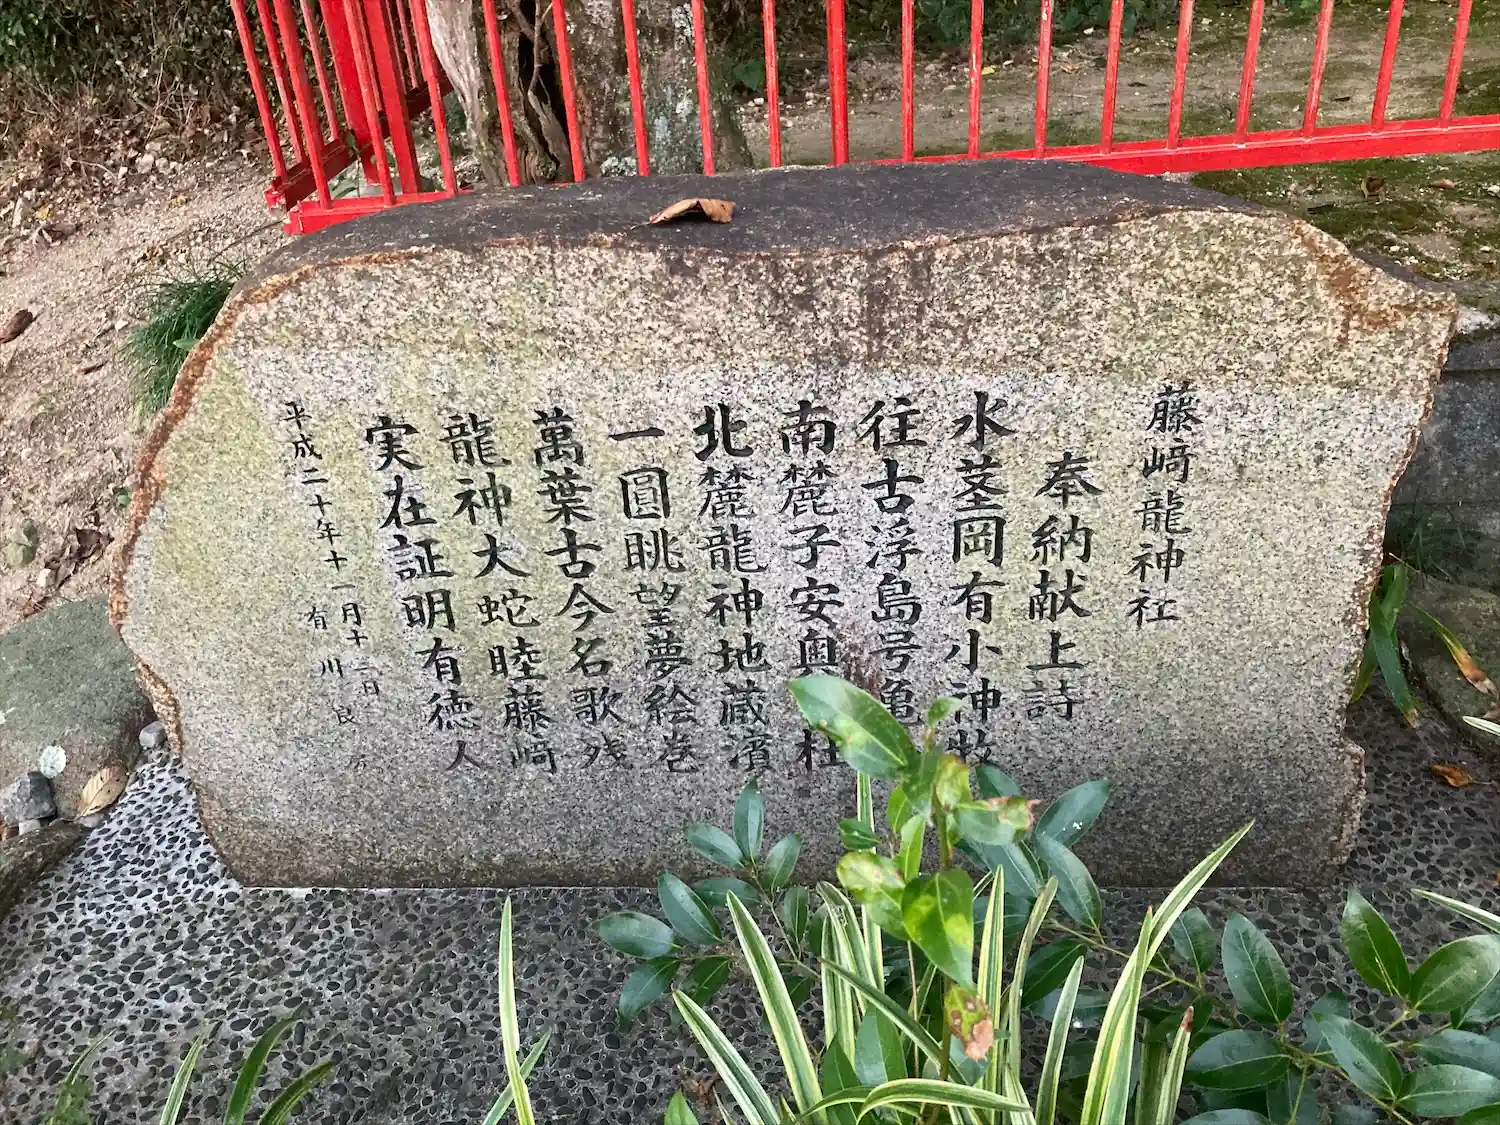 藤﨑龍神社
奉納献上詩
水茎岡有小神
往古浮島号亀
南麓子安奥 杜
北麓龍神地蔵濱
一圓眺望夢絵巻
萬葉古今名歌残
龍神大蛇睦藤﨑
実在証明有徳人
平成二十年十一月十二日
有川良